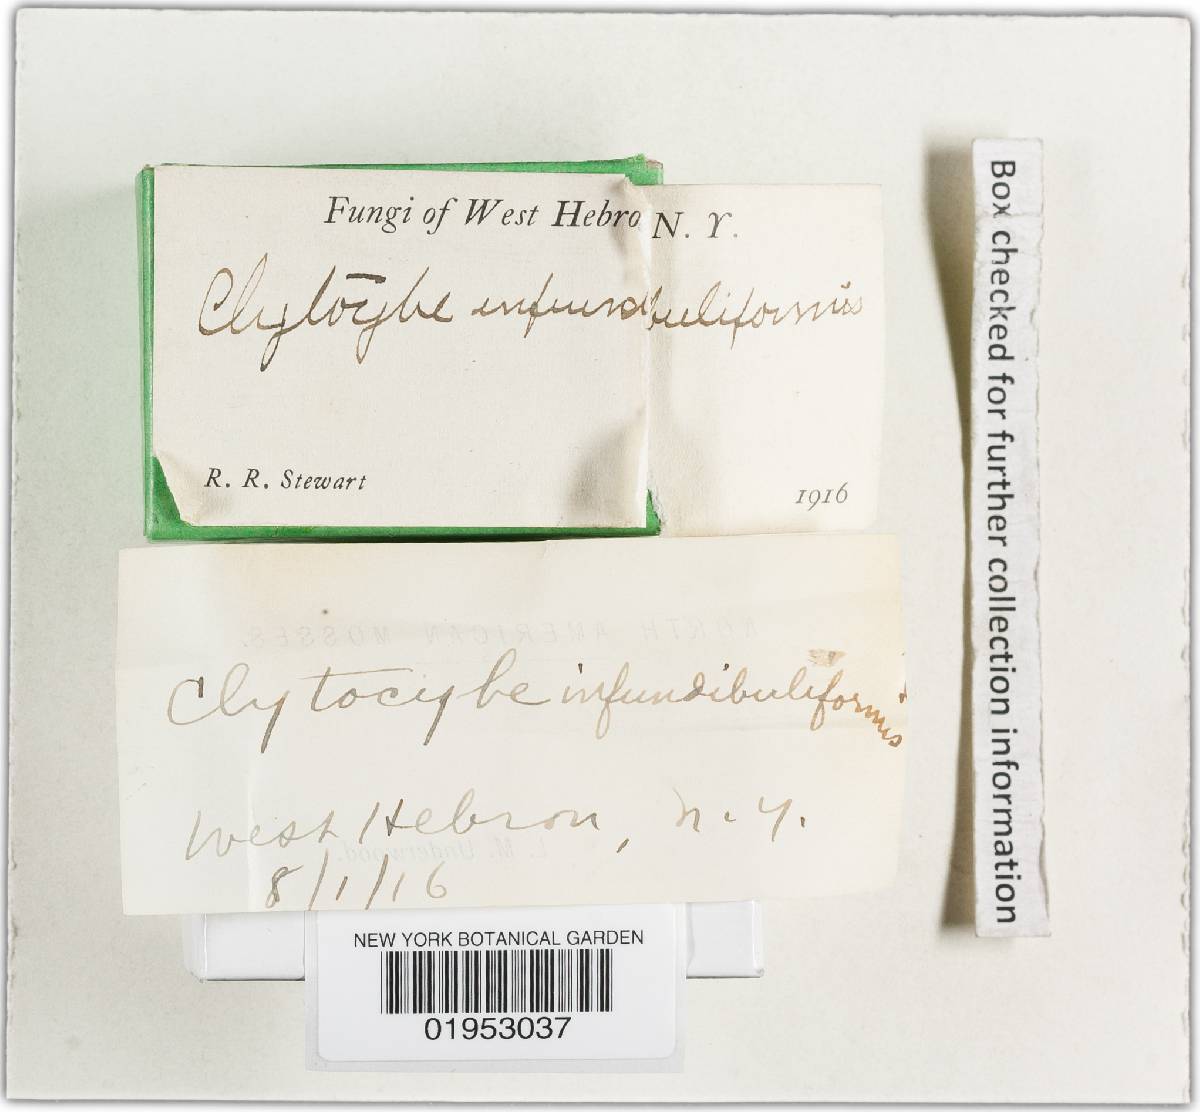 Fungi of West Hebro N. Y.
Clytocybe infundibuliformis
R. R. Stewart
1916
NORTH AMERICAN MOSSES.
Clytocybe infundibuliformis
West Hebron, N.Y.
L. M. Underwood.
8/1/16
NEW YORK BOTANICAL GARDEN
01953037
Box checked for further collection information